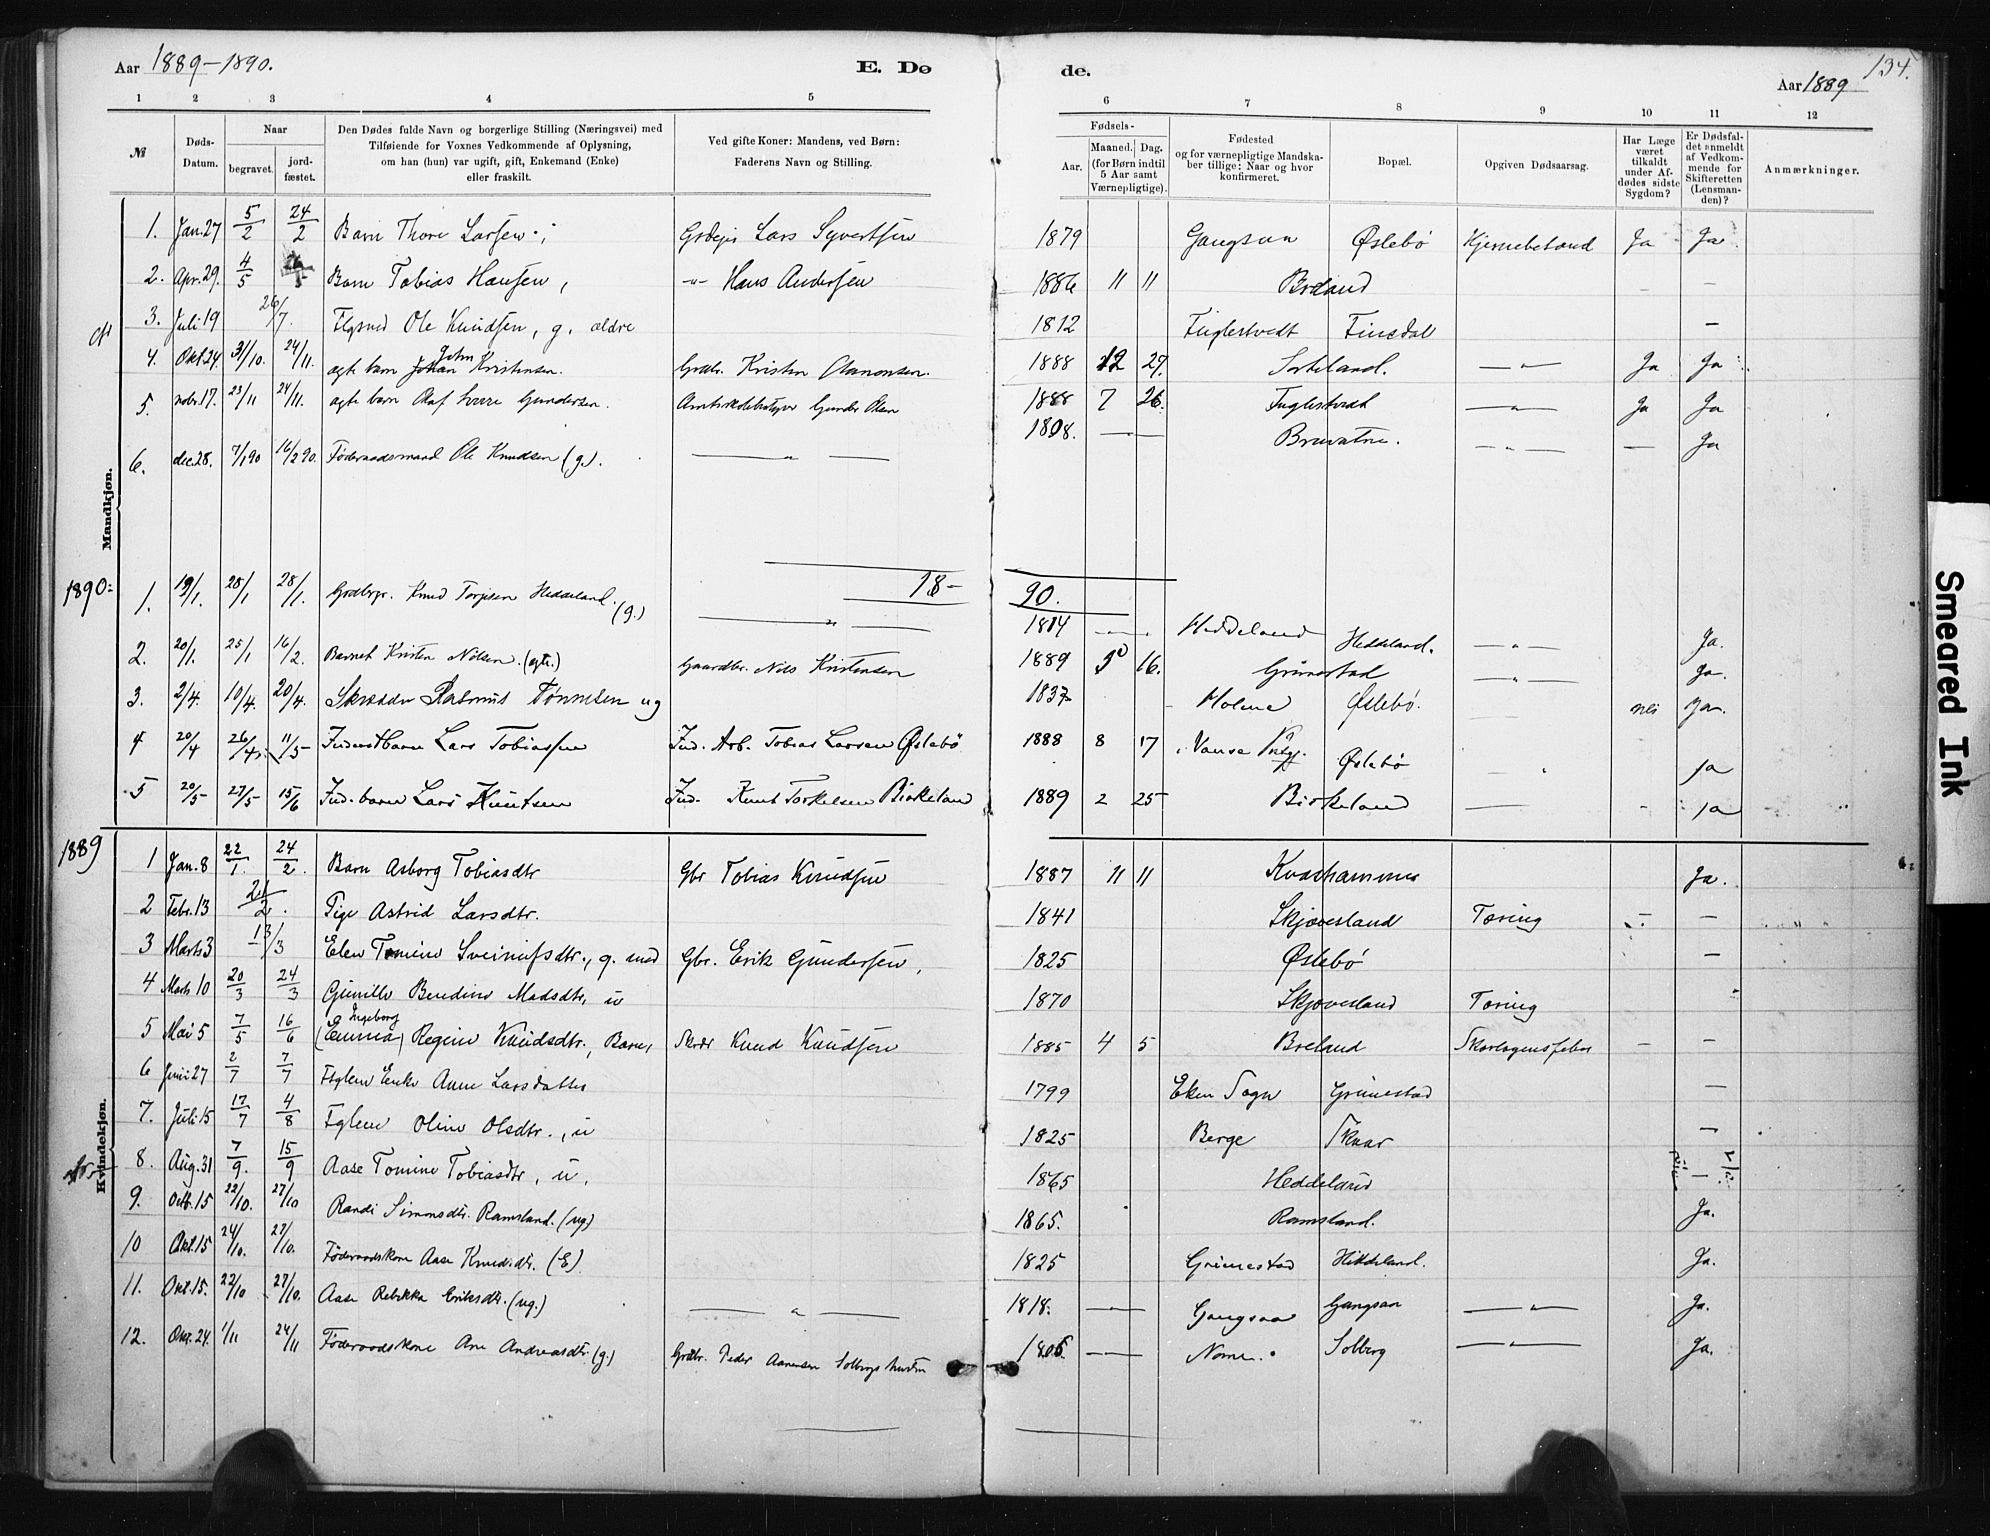 Aar 1889-1890. E. Dø de. Aar 1889 134.
1 2 3 4 5 6 7 8 9 10 11 12
№ Døds-Datum. Naar begravet. jord-fæstet. Den Dødes fulde Navn og borgerlige Stilling (Næringsvei) med Tilføiende for Voxnes Vedkommende af Oplysning, om han (hun) var ugift, gift, Enkemand (Enke) eller fraskilt. Ved gifte Koner: Mandens, ved Børn: Faderens Navn og Stilling. Fødsels- Aar. Maaned. Dag. (for Børn indtil 5 Aar samt Værnepligtige). Fødested og for værnepligtige Mandska-ber tillige: Naar og hvor konfirmeret. Bopæl. Opgiven Dødsaarsag. Har Læge været tilkaldt under Af-dødes sidste Sygdom? Er Dødsfal-det anmeldt af Vedkom-mende for Skifteretten (Lensman-den)? Anmærkninger.
Mandkjøn.
1. Jan. 27 5/2 24/2 Barn Thore Larsen Lars Syvertsen 1879 Gangsaa Øslebø Ja Ja
2. Apr. 29. 4/5 Barn Tobias Hansen, -"- Hans Andersen 1886 11 11 Breland – –
3. Juli 19 26/7. Ole Knudsen, g. ældre 1812 Fuglestvedt Finsdal –
4. Okt. 24 31/10. 24/11. ægte barn Johan John Kristensen. Grdbr. Kristen Aanonsen. 1888 12 27. Sorteland. –"– Ja Ja
5. nobr. 17. 23/11 24/11. ægte barn Olaf Gundersen. Gunder Olsen 1888 7 26. Fuglestvedt –"– Ja Ja
6. dec. 28. 7/1 90 16/2 90. Føderaadsmand Ole Knudsen (g.). –"– 1808. –"– –"– – Ja
18-90.
1890:
1. 19/1. 28/1 28/1. Knud Torjusen Heddeland. (g.) –"– 1814 –"– Heddeland Heddeland. –"– Ja.
2. 20/1. 25/1 16/2. Barnet Kristen Nilsen. (ægte.) Gaardbr. Nils Kristensen 1889 16. Grimestad –"– Ja.
3. 2/4. 10/4. 20/4. Skrædder Rasmus Tønnesen ug 1837 Holme Øslebø. nei Ja.
4 20/4 26/4 11/5 Inderstbarn Lars Tobiassen Ind. Arb. Tobias Larsen Øslebø 1888 8 17 Øslebø ja
5 20/5 27/5 15/6 Ind. barn Lars Knutsen Ind. Knut Torkelsen Birkeland 1889 2 25 Birkeland – ja
1889
Kvindekjøn.
1 Jan. 8 22/1. 24/2. Barn Asborg Tobiasdtr Gbr Tobias Knudsen 1887 11 11 Kvarhammer Ja.
2 Febr. 13 24/2. Pige Astrid Larsdtr. 1841 Skjævesland Tæring – –
3 Marts 3 13/3 Elen Tomine Sveinufsdtr., g. med Gbr. Erik Gundersen, 1825 Øslebø –
4 Marts 10 20/3 24/3 Gunille Bendine Madsdtr, u 1870 Skjævesland Tæring
5 Mai 5 7/5 16/6 (Emma) Ingeborg Regine Knudsdtr., Barn, Knud Knudsen 1885 4 5 Breland Skarlagensfeber – –
6 Juni 27 2/7 7/7 Enke Anne Larsdatter 1799 Eken Sogn Grimestad –
7. Juli 15 17/7 4/8 Oline Olsdtr., u 1825 Berge Skaar –
8. Aug. 31 7/9. 15/9 Aase Tomine Tobiasdtr, u, 1865 Heddeland –
9. Octb. 15 22/10. 27/10 Randi Simonsdtr. Ramsland. (ug.) 1865. Ramsland. Ja.
10 Okt. 15 24/10. 27/10. Føderaadskone Aase Knudsdtr. (E) 1825 Grimestad Heddeland. Ja.
11. Okt. 15. 22/10 27/10. Aase Rebekka Eriksdtr. (ug.) –"– 1818. –"– Gangsaa Gangsaa –"– Ja.
12. Okt. 24. 1/11 24/11 Føderaadskone Ane Andreasdtr. (g.) Grdbr. Peder Aanensen Solbergs hustru –"– Nome. Solberg –"– Ja.
Smeared Ink